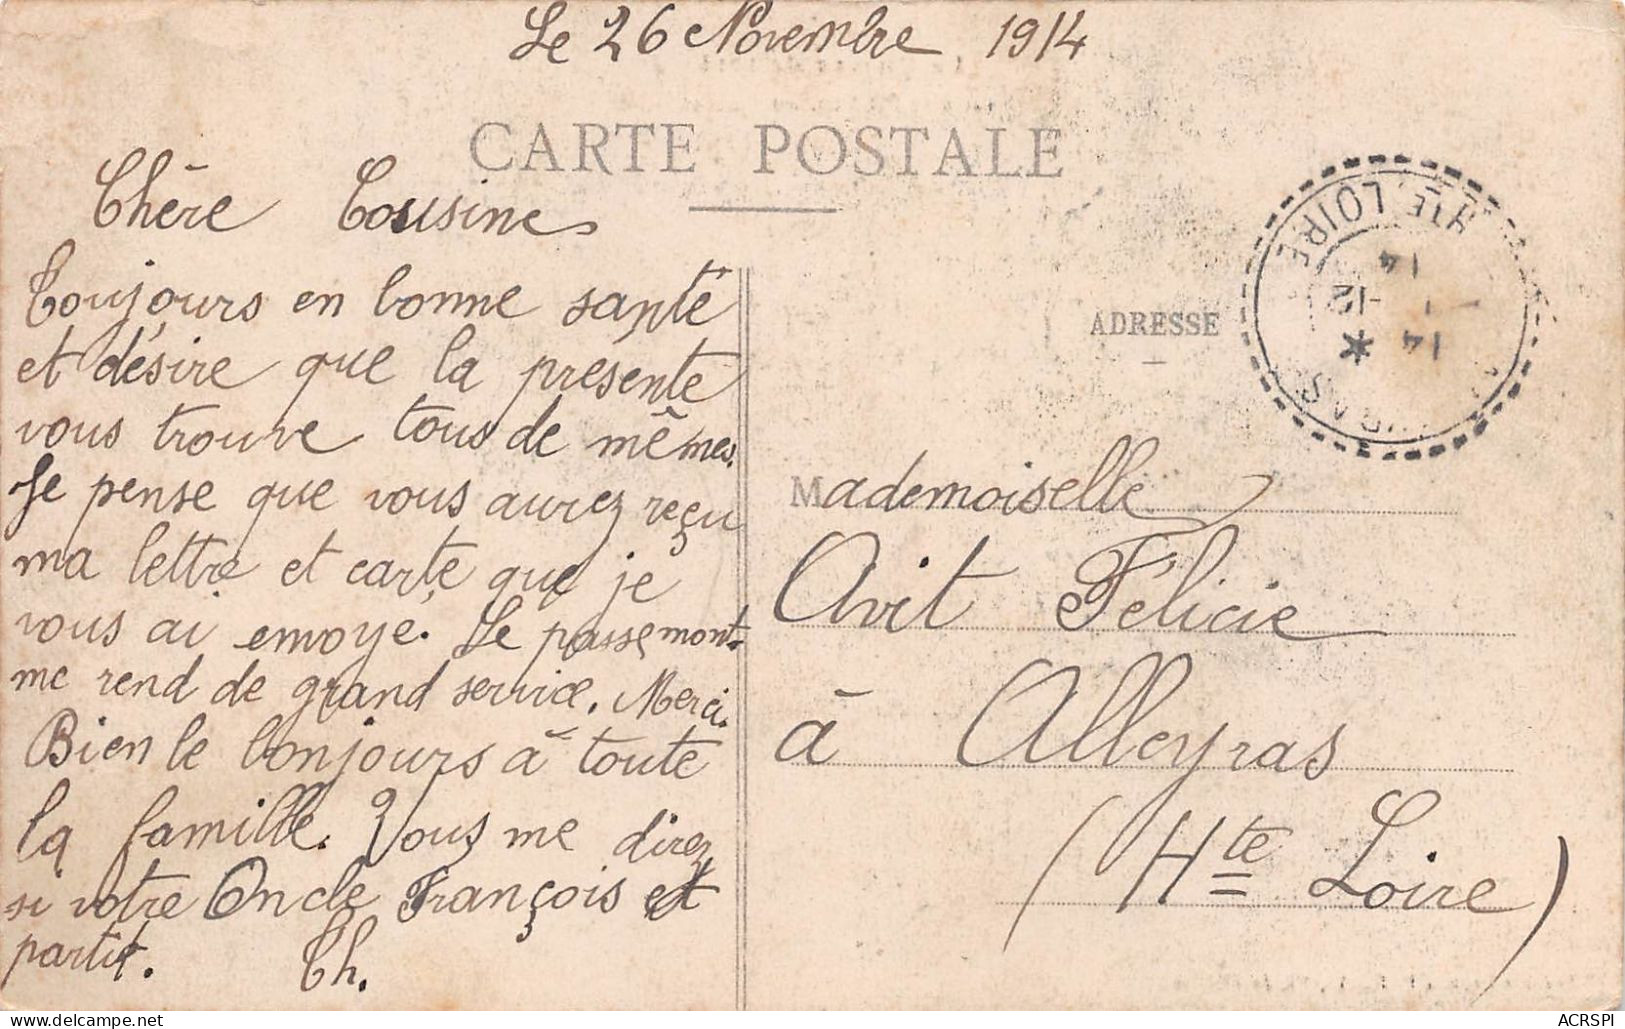 Le 26 Novembre, 1914
CARTE POSTALE
Chère Cousine
Toujours en bonne santé
et désire que la présente
vous trouve tous de mêmes.
Je pense que vous aurez reçu
ma lettre et carte que je
vous ai envoyé. Le passemont.
me rend de grand service. Merci.
Bien le bonjours à toute
la famille. Vous me direz
si votre Oncle François et
partit. Ch.
ADRESSE
Mademoiselle
Avit Félicie
à Alleyras
(Hte Loire)
HTE LOIRE
14 -12 14
ACRSPI